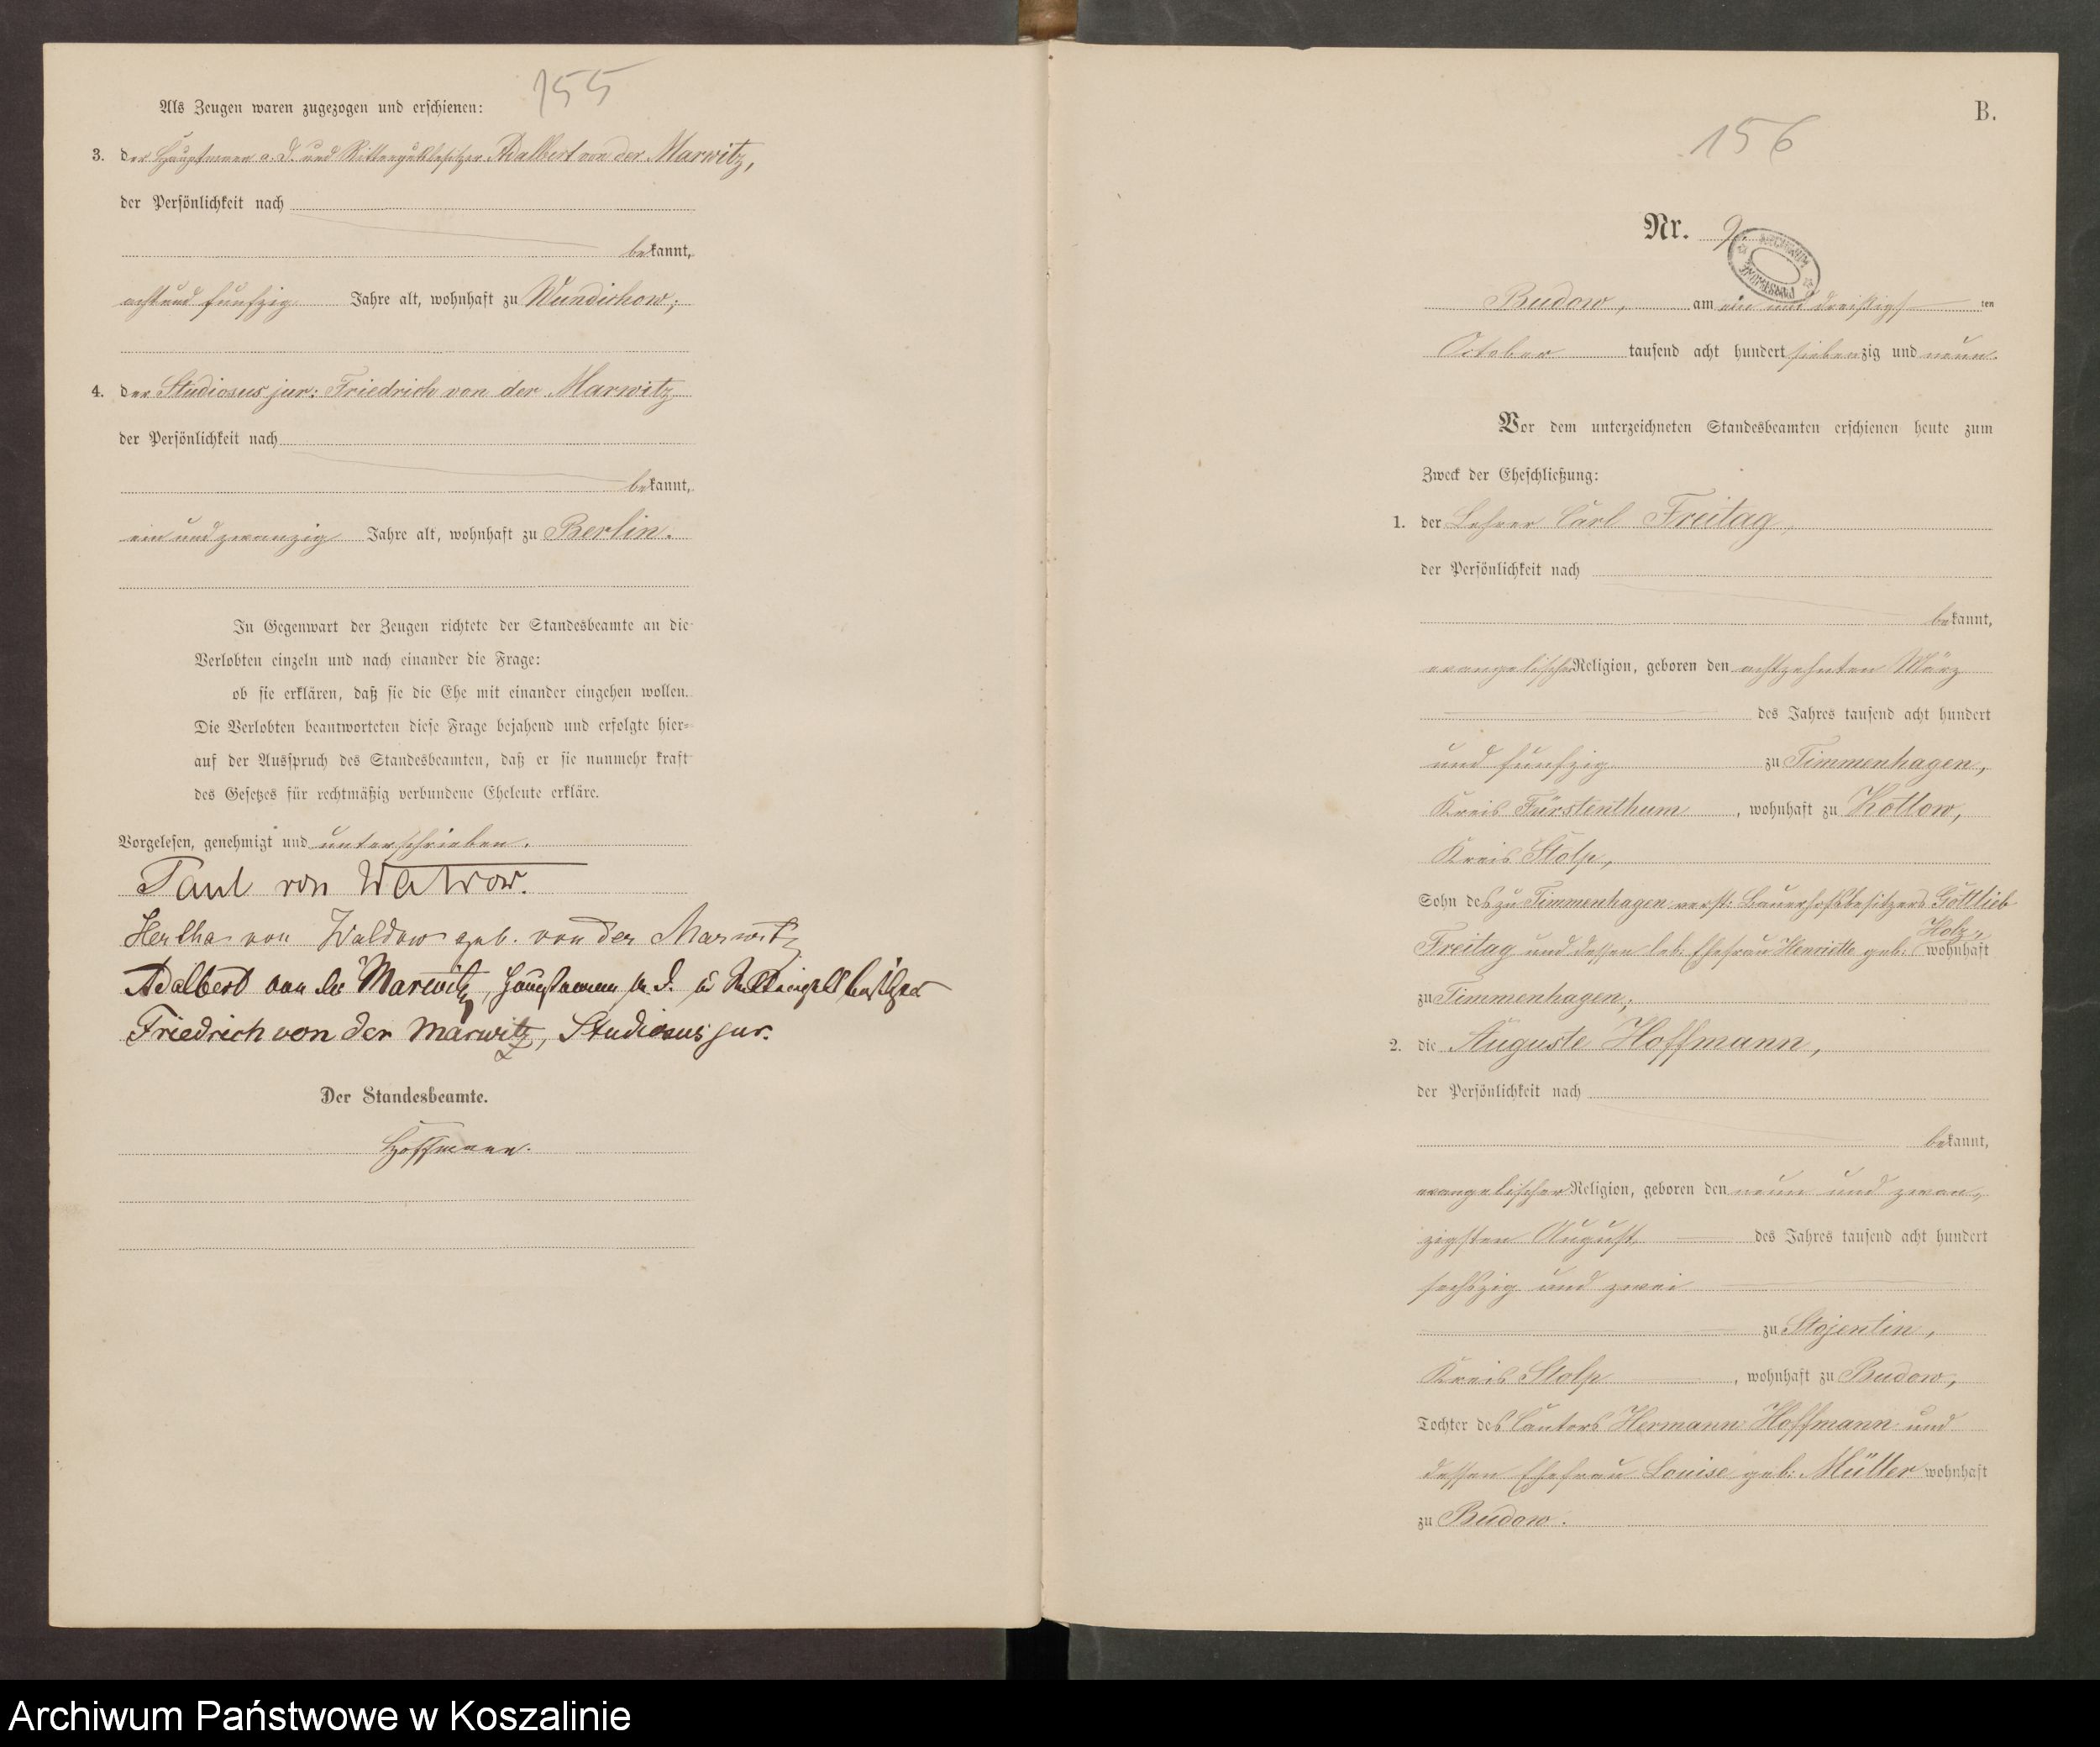 155
Als Zeugen waren zugezogen und erschienen:
3. der Hauptmann a. D. und Rittergutsbesitzer Adalbert von der Marwitz,
der Persönlichkeit nach
bekannt,
acht und funfzig Jahre alt, wohnhaft zu Wundichow;
4. der Studiosus jur: Friedrich von der Marwitz
der Persönlichkeit nach
bekannt,
ein und zwanzig Jahre alt, wohnhaft zu Berlin.
In Gegenwart der Zeugen richtete der Standesbeamte an die
Verlobten einzeln und nach einander die Frage:
ob sie erklären, daß sie die Ehe mit einander eingehen wollen.
Die Verlobten beantworteten diese Frage bejahend und erfolgte hier-
auf der Ausspruch des Standesbeamten, daß er sie nunmehr kraft
des Gesetzes für rechtmäßig verbundene Eheleute erkläre.
Vorgelesen, genehmigt und unterschrieben.
Paul von Waldow.
Hertha von Waldow geb. von der Marwitz
Adalbert von der Marwitz, Hauptmann a. D. u Rittergutsbesitzer
Friedrich von der Marwitz, Studiosus jur.
Der Standesbeamte.
Hoffmann.
B.
156
Nr. 9.
ARCHIWUM PAŃSTWOWE
Budow, am ein und dreißigsten
October tausend acht hundert siebenzig und neun.
Vor dem unterzeichneten Standesbeamten erschienen heute zum
Zweck der Eheschließung:
1. der Lehrer Carl Freitag,
der Persönlichkeit nach
bekannt,
evangelischer Religion, geboren den achtzehnten März
des Jahres tausend acht hundert
und funfzig zu Timmenhagen,
Kreis Fürstenthum, wohnhaft zu Kottow,
Kreis Stolp,
Sohn des zu Timmenhagen verst: Bauerhofsbesitzers Gottlieb
Freitag und dessen leb: Ehefrau Henriette geb: Holz, wohnhaft
zu Timmenhagen;
2. die Auguste Hoffmann,
der Persönlichkeit nach
bekannt,
evangelischer Religion, geboren den neun und zwan-
zigsten August des Jahres tausend acht hundert
sechszig und zwei
zu Stojentin,
Kreis Stolp, wohnhaft zu Budow,
Tochter des Cantors Hermann Hoffmann und
dessen Ehefrau Louise geb: Müller wohnhaft
zu Budow.
Archiwum Państwowe w Koszalinie